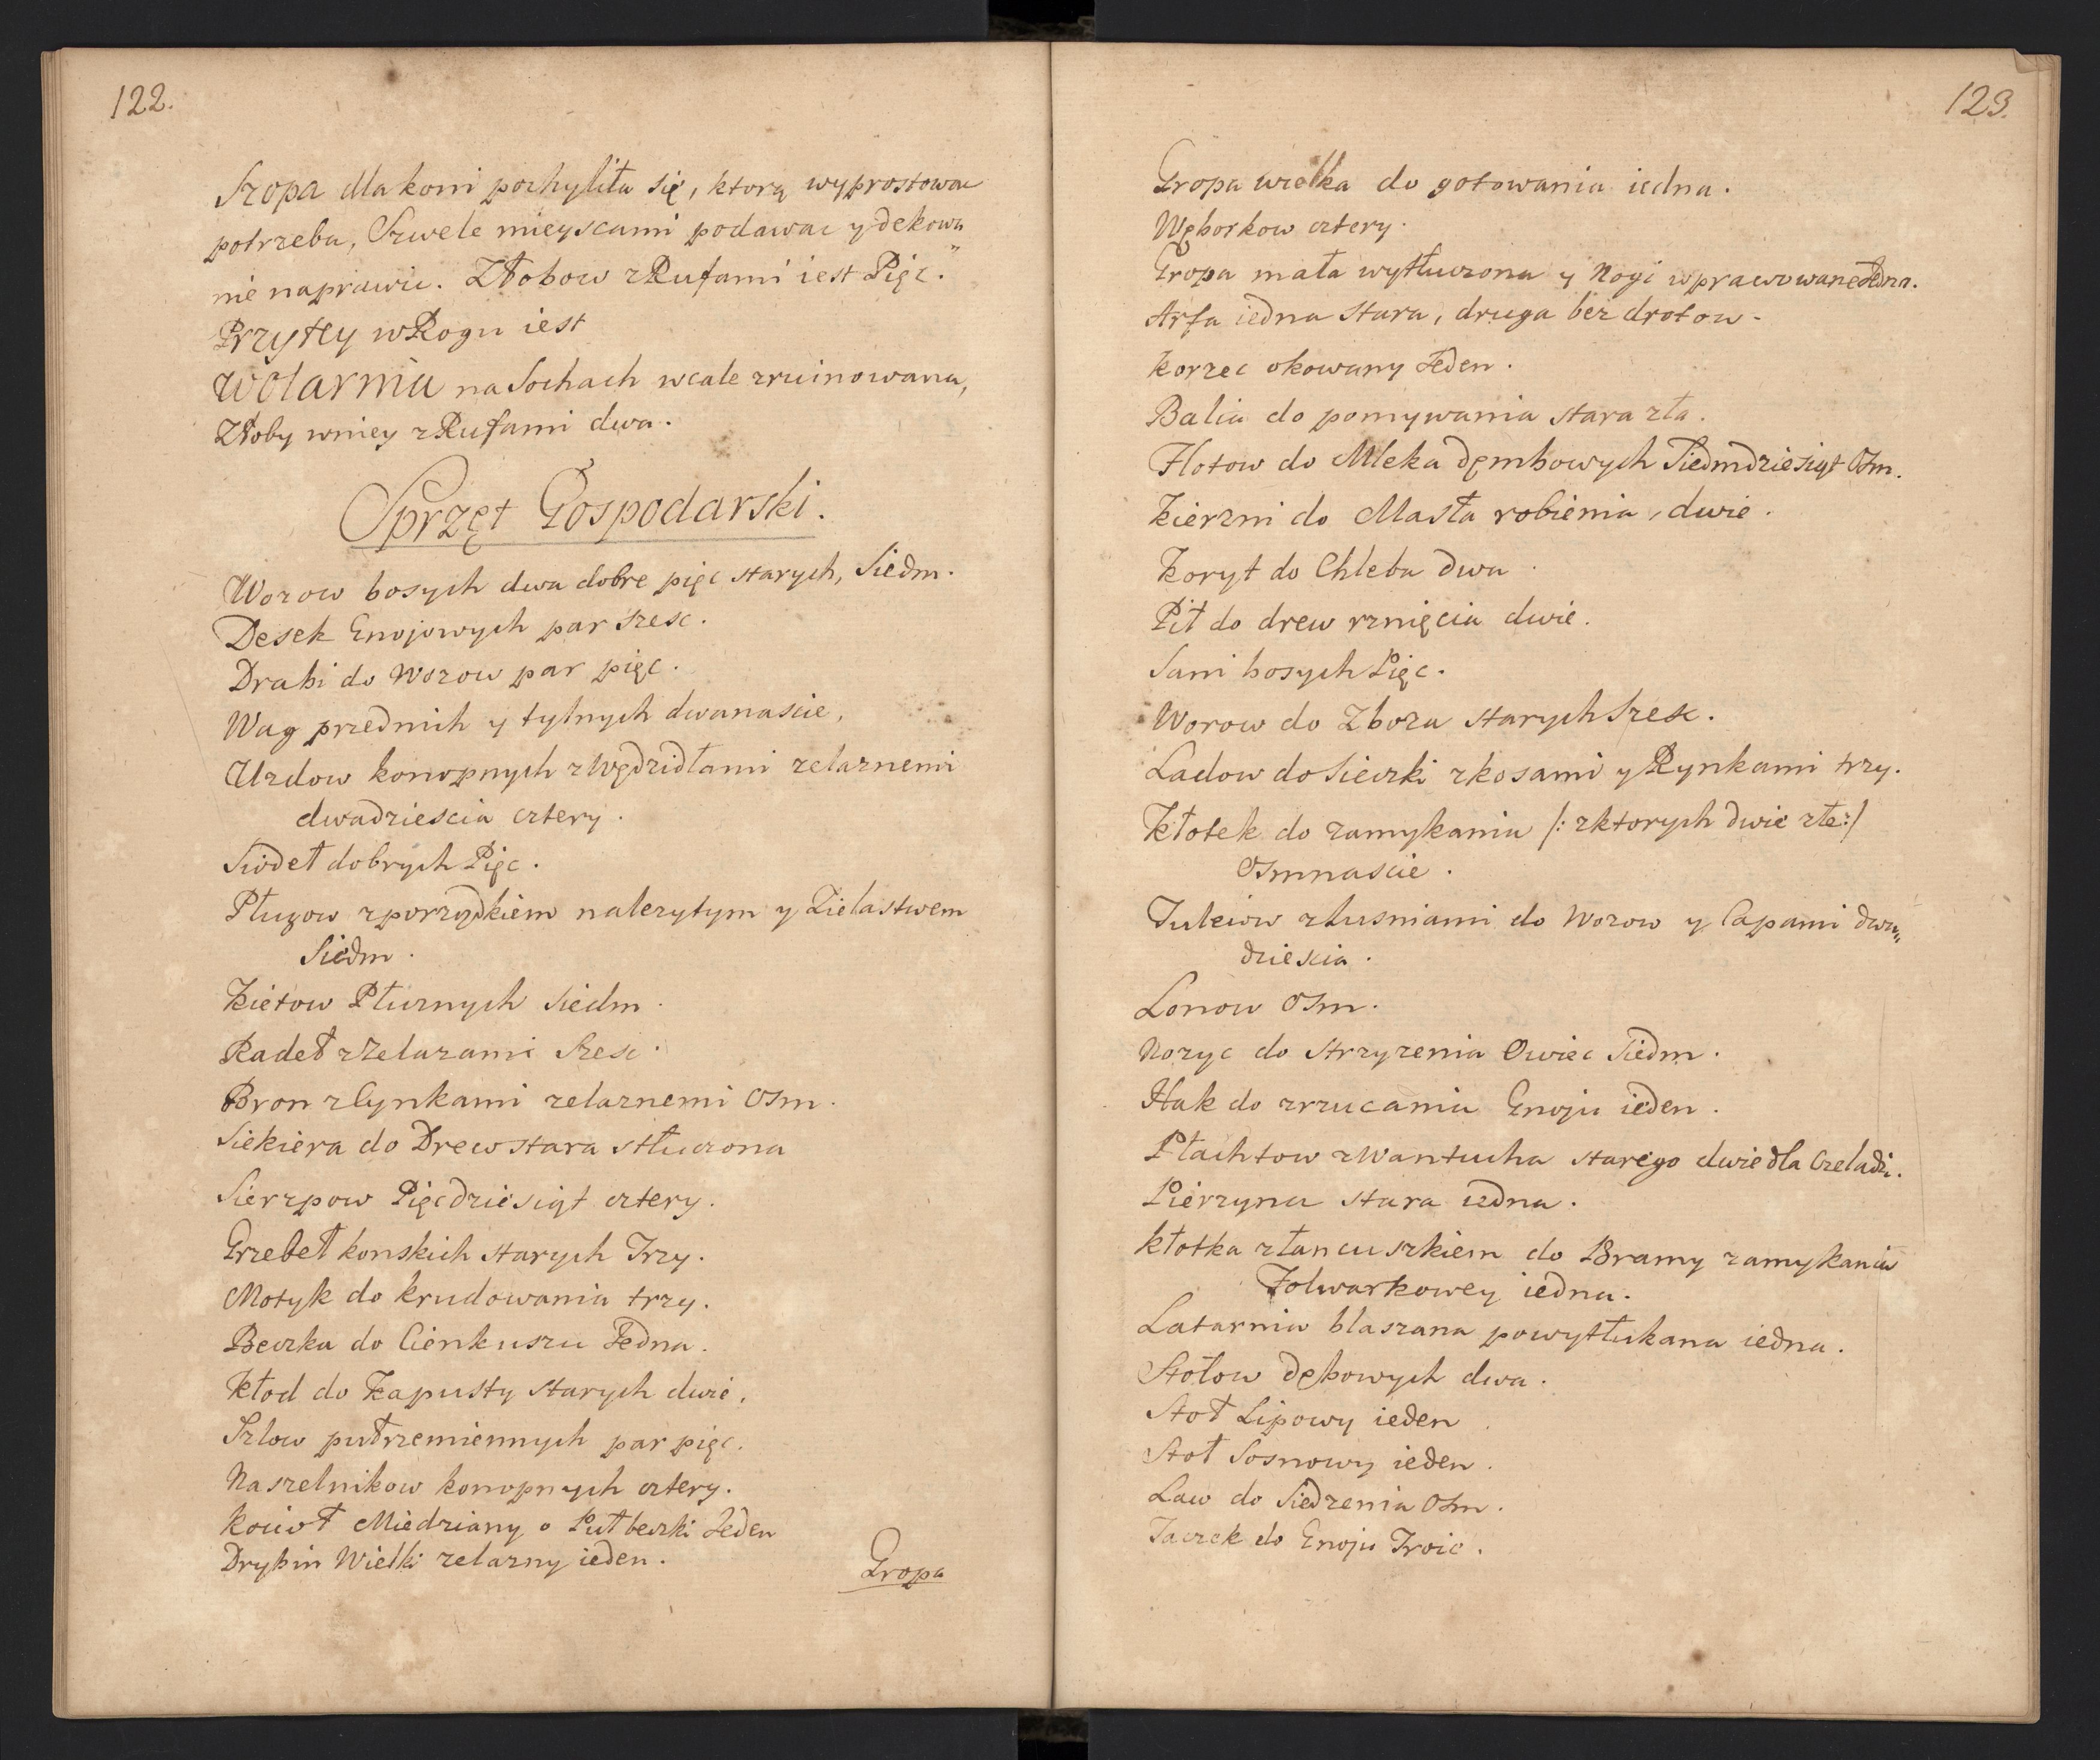 122.
Szopa dla koni pochyliła się, ktorą wyprostowac
potrzeba, Szwele mieyscami podawac y dekowa„
nie naprawic. Złobow z Rufami iest Pięc.
Przytey w Rogu iest
Wołarnia na Sochach wcale zruinowana,
Złoby wniey z Rufami dwa.
Sprzęt Gospodarski.
Wozow bosych dwa dobre pięc starych, Siedm.
Desek Gnojowych par szesc.
Drabi do Wozow par pięc.
Wag przednich y tylnych dwanascie,
Uzdow konopnych z Wędzidłami zelaznemi
dwadziescia cztery.
Siodeł dobrych Pięc.
Pługow z porządkiem nalezytym y Zielastwem
Siedm.
Kietow Płuznych Siedm.
Radeł z Zelazami Szesc.
Bron z Cynkami zelaznemi Osm.
Siekiera do Drew stara stłuczona
Sierzpow Pięcdziesiąt cztery.
Grzebeł konskich starych Trzy.
Motyk do krudowania trzy.
Beczka do Cienkuszu Jedna.
Kłod do Kapusty starych dwie.
Szlow pułrzemiennych par pięc.
Naszelnikow konopnych cztery.
Kocioł Miedziany o Puł beczki Jeden
Drybin Wielki zelazny ieden.
Gropa
123.
Gropa wielka do gotowania iedna.
Węborkow cztery.
Gropa mała wytłuczona y Nogi wprawowane Jedna.
Arfa iedna stara, druga bez drotow.
Korzec okowany Jeden.
Balia do pomywania stara zła.
Flotow do Mleka dębowych Siedmdziesiąt Osm.
Kierzni do Masła robienia, dwie.
Koryt do Chleba dwa.
Pił do drew rznięcia dwie.
Sani bosych Pięc.
Worow do Zboza starych Szesc.
Ladow do Sieczki z kosami y Rynkami trzy.
Kłotek do zamykania /: z ktorych dwie złe:/
Osmnascie.
Tuleiow z lusniami do Wozow y Capami dwa„
dziescia.
Lonow Osm.
Nozyc do Strzyzenia Owiec Siedm.
Hak do zrzucania Gnoju ieden.
Płachtow z Wantucha starego dwie dla Czeladzi.
Pierzyna stara iedna.
kłotka z łancuszkiem do Bramy zamykania
Folwarkowey iedna.
Latarnia blaszana powytłukana iedna.
Stołow dębowych dwa.
Stoł Lipowy ieden.
Stoł Sosnowy ieden.
Law do Siedzenia Osm.
Taczek do Gnoju Troie.